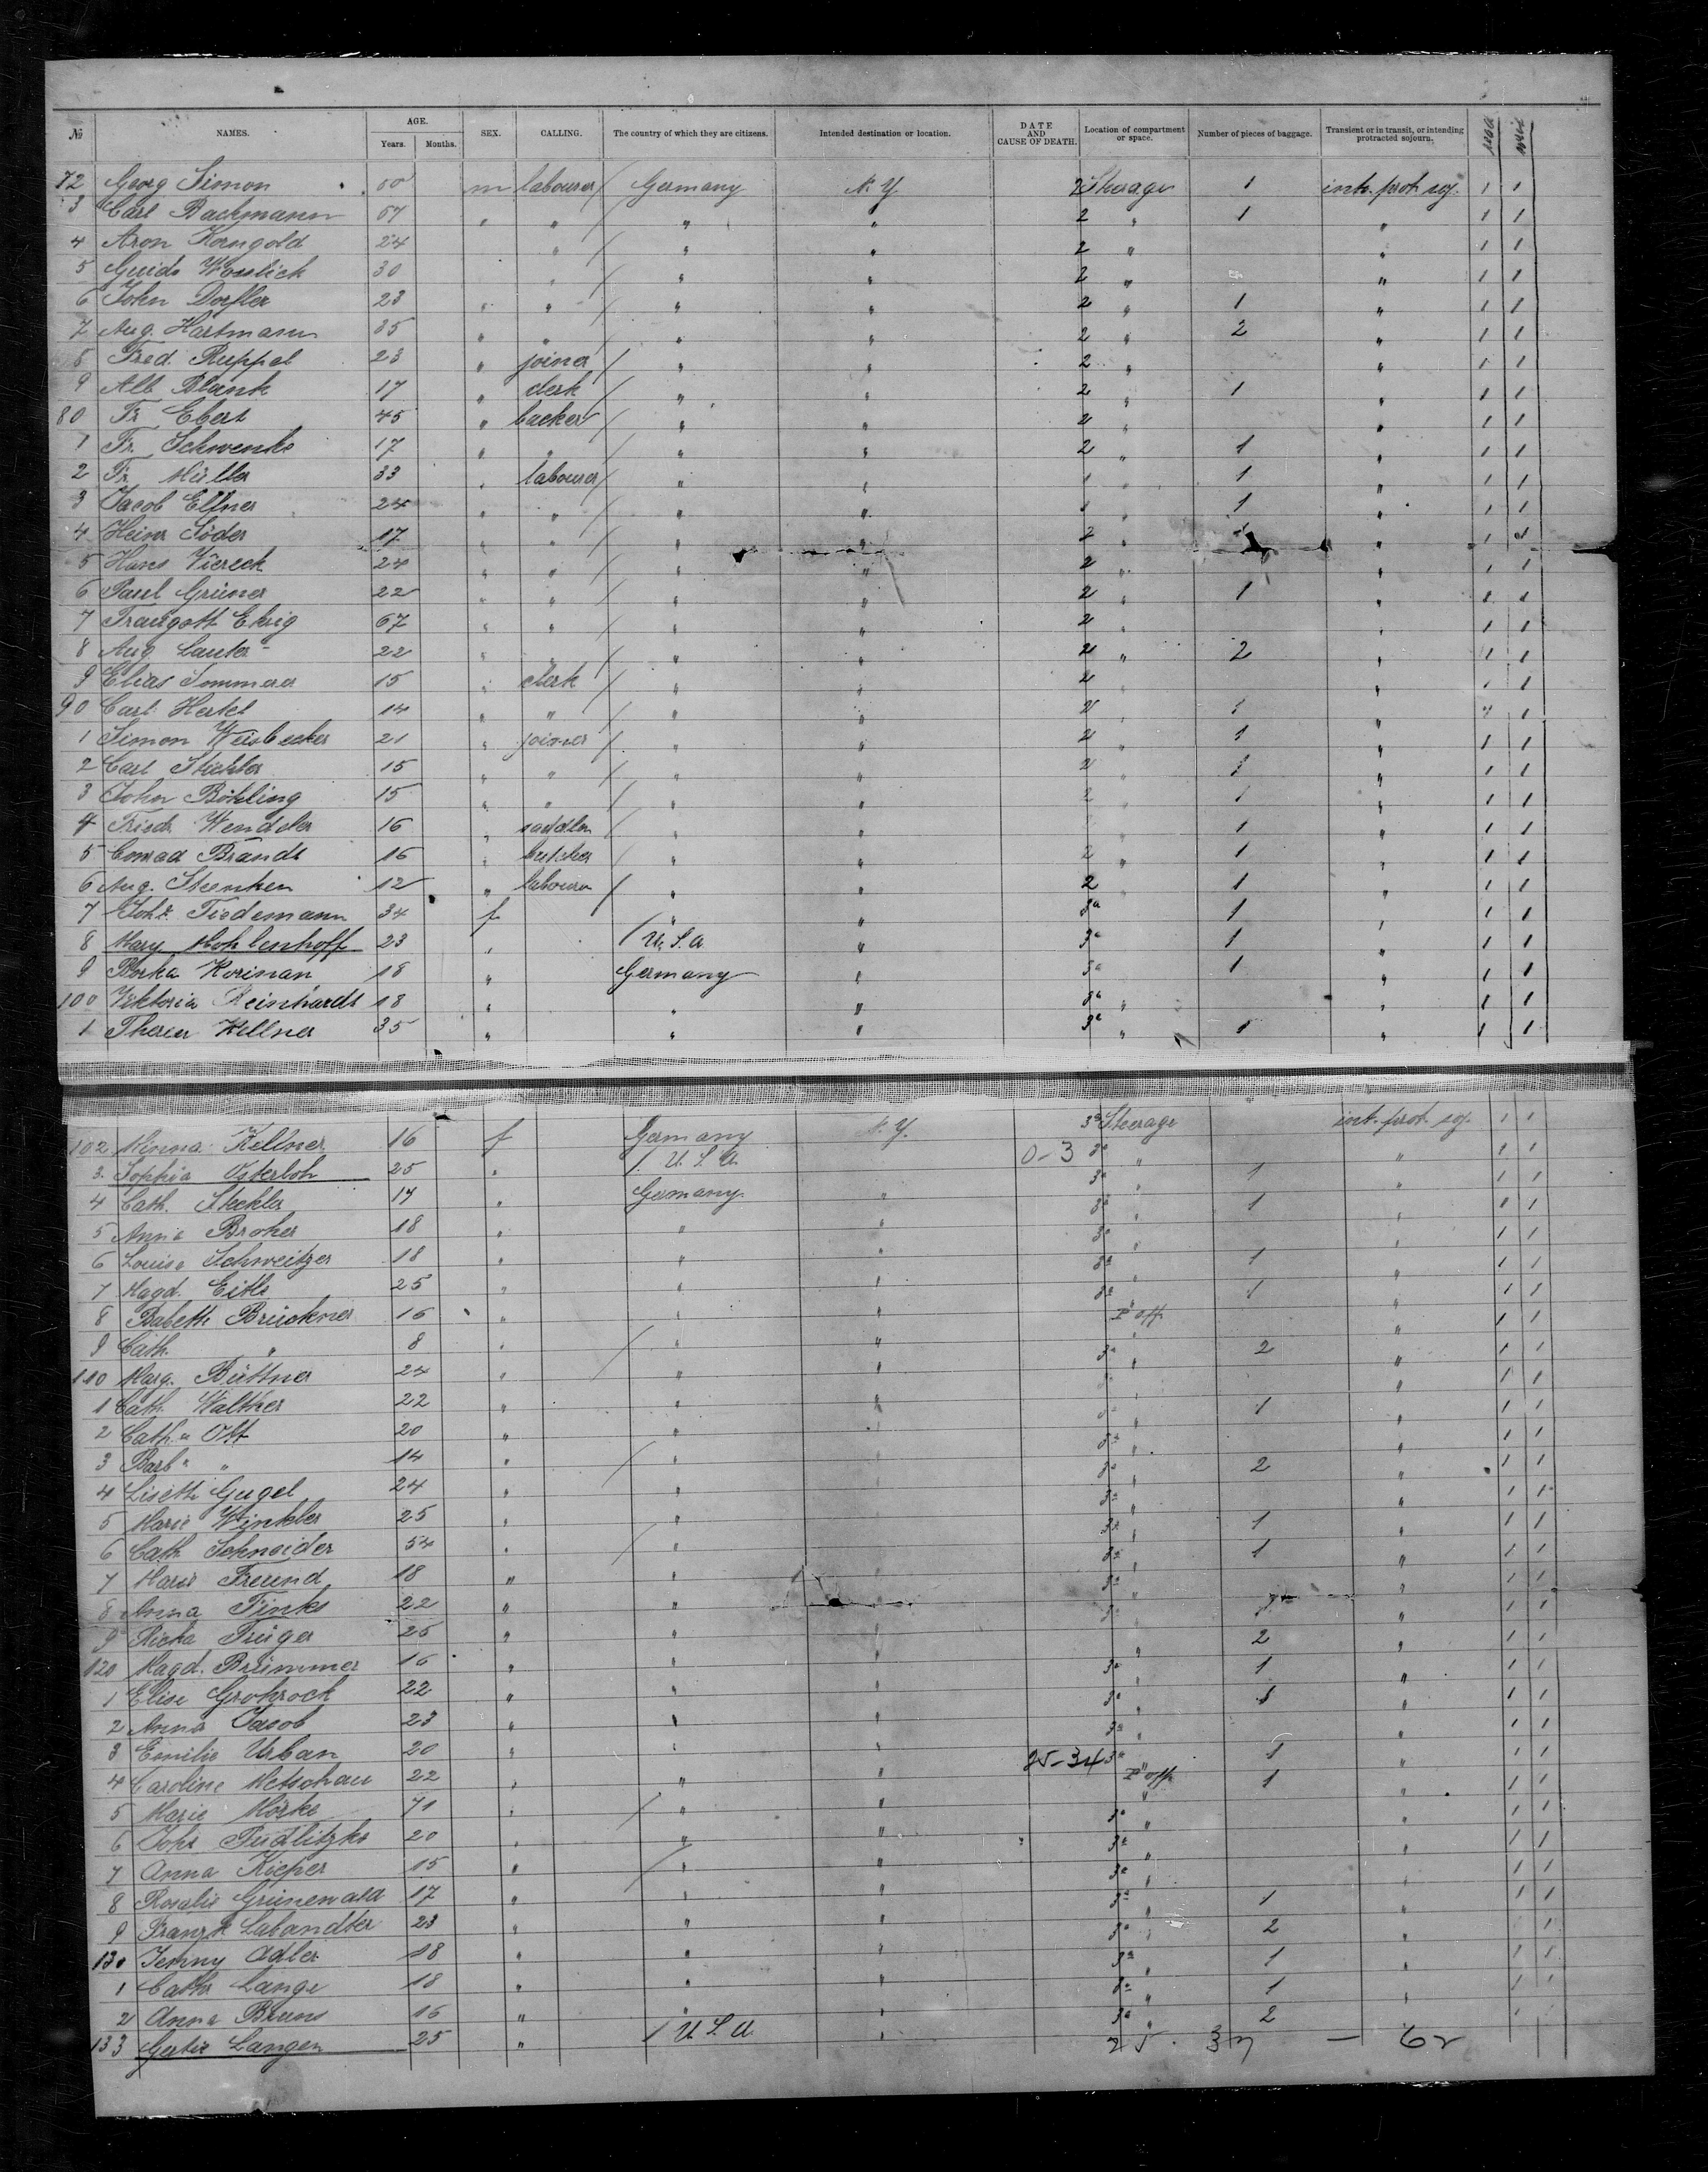 № NAMES. AGE. Years. Months. SEX. CALLING. The country of which they are citizens. Intended destination or location. DATE AND CAUSE OF DEATH. Location of compartment or space. Number of pieces of baggage. Transient or in transit, or intending protracted sojourn.
72 Georg Simon m labourer / Germany N. Y. 2 Steerage 1 int. prot. soj. 1 1
3 Carl Bachmann 67 " " / " " 2 " 1 " 1 1
4 Aron Korngold 24 " / " " 2 " " 1 1
5 Guido 30 " / " " 2 " " 1 1
6 John Dorfler 23 " " / " " 2 " 1 " 1 1
7 Aug. Hartmann 35 " " / " " 2 " 2 " 1 1
8 Fred. Ruppel 23 " joiner / " " 2 " " 1 1
9 Alb. Blank 17 " clerk / " " 2 " 1 " 1 1
80 Fr. Ebert 45 " backer / " " 2 " " 1 1
1 Fr. Schwenke 17 " " / " " 2 " 1 " 1 1
2 Fr. Müller 33 " labourer / " " 1 " 1 " 1 1
3 Jacob Elfner 24 " " / " " 1 " 1 " 1 1
4 Heinr Söder 17 " " / " " 2 " 1 " 1 1
5 Hans Viereck 24 " " / " " 2 " " 1 1
6 Paul Grüner 22 " " / " " 2 " 1 " 1 1
7 Traugott Ehrig 67 " " / " " 2 " " 1 1
8 Aug. Lauter 22 " " / " " 2 " 2 " 1 1
9 Elias Sommerer 15 " clerk / " " 2 " " 1 1
90 Carl Hertel 14 " " / " " 2 " 1 " 1 1
1 Simon Weisbecker 21 " joiner / " " 2 " 1 " 1 1
2 Carl Stichler 15 " " / " " 2 " 1 " 1 1
3 John Böhling 15 " " / " " 2 " 1 " 1 1
4 Friedr. Wendeler 16 " saddler / " " 1 " 1 1
5 Conrad Brandt 16 " butcher / " " 2 " 1 " 1 1
6 Aug. Steenken 12 " labourer / " " 2 " 1 " 1 1
7 Joh. Tiedemann 34 f " " 3a 1 " 1 1
8 Mary Mohlenhoff 23 " / U. S. A. " 3a 1 " 1 1
9 Korinan 18 " Germany " 3a 1 " 1 1
100 Viktoria Reinhardt 18 " " " 3a " " 1 1
1 Kellner 35 " " " 3a " 1 " 1 1
102 Minna Kellner 16 f Germany N. Y. 3a Steerage int. prot. soj. 1 1
3 Sophia Osterloh 25 " / U. S. A. 0-3 3a " " 1 1
4 Cath. Steckler 17 " Germany " 3a " 1 " 1 1
5 Anna Broker 18 " " " 3a " 1 " 1 1
6 Louise Schweitzer 18 " " " 3a " " 1 1
7 Magd. Eitle 25 " " " 3a " 1 " 1 1
8 Babette Brückner 16 " " " 3a " 1 " 1 1
9 Cath. " 8 " / " " off " 1 1
110 Marg. Büttner 24 " " " 3a " 2 " 1 1
1 Cath. Walther 22 " " " 3a " " 1 1
2 Cath.a Ott 20 " " " 3a " 1 " 1 1
3 Barb.a " 14 " / " " 3a " " 1 1
4 Lisette Gugel 24 " " " 3a " 2 " 1 1
5 Marie Winkler 25 " " " 3a " " 1 1
6 Cath. Schneider 54 " / " " 3a " 1 " 1 1
7 Marie Freund 18 " " " 3a " 1 " 1 1
8 Anna Finke 22 " " " 3a " " 1 1
9 Ricka Früger 25 " " " 3a " 1 " 1 1
120 Magd. Brümmer 16 " " " " 2 " 1 1
1 Elise Grohrock 22 " " " 3a " 1 " 1 1
2 Anna Jacob 23 " " " 3a " 1 " 1 1
3 Emilie Urban 20 " " " 3a " " 1 1
4 Caroline Metschau 22 " " " 25-34 3a " 1 " 1 1
5 Marie Mörke 71 " / " " off " 1 " 1 1
6 Johe Pudlitzke 20 " " " 3a " " 1 1
7 Anna Kieper 15 " / " " 3a " " 1 1
8 Rosalie Grünewald 17 " " " 3a " " 1 1
9 Labandter 23 " " " 3a " 1 " 1 1
130 Jenny Adler 18 " " " 3a " 2 " 1
1 Cathr Lange 18 " " " 3a " 1 " 1 1
2 Anna Bruns 16 " " " 3a " 1 " 1 1
133 Langen 25 " / U. S. A. " 3a " 2 " 1 1
25. 37 — 62